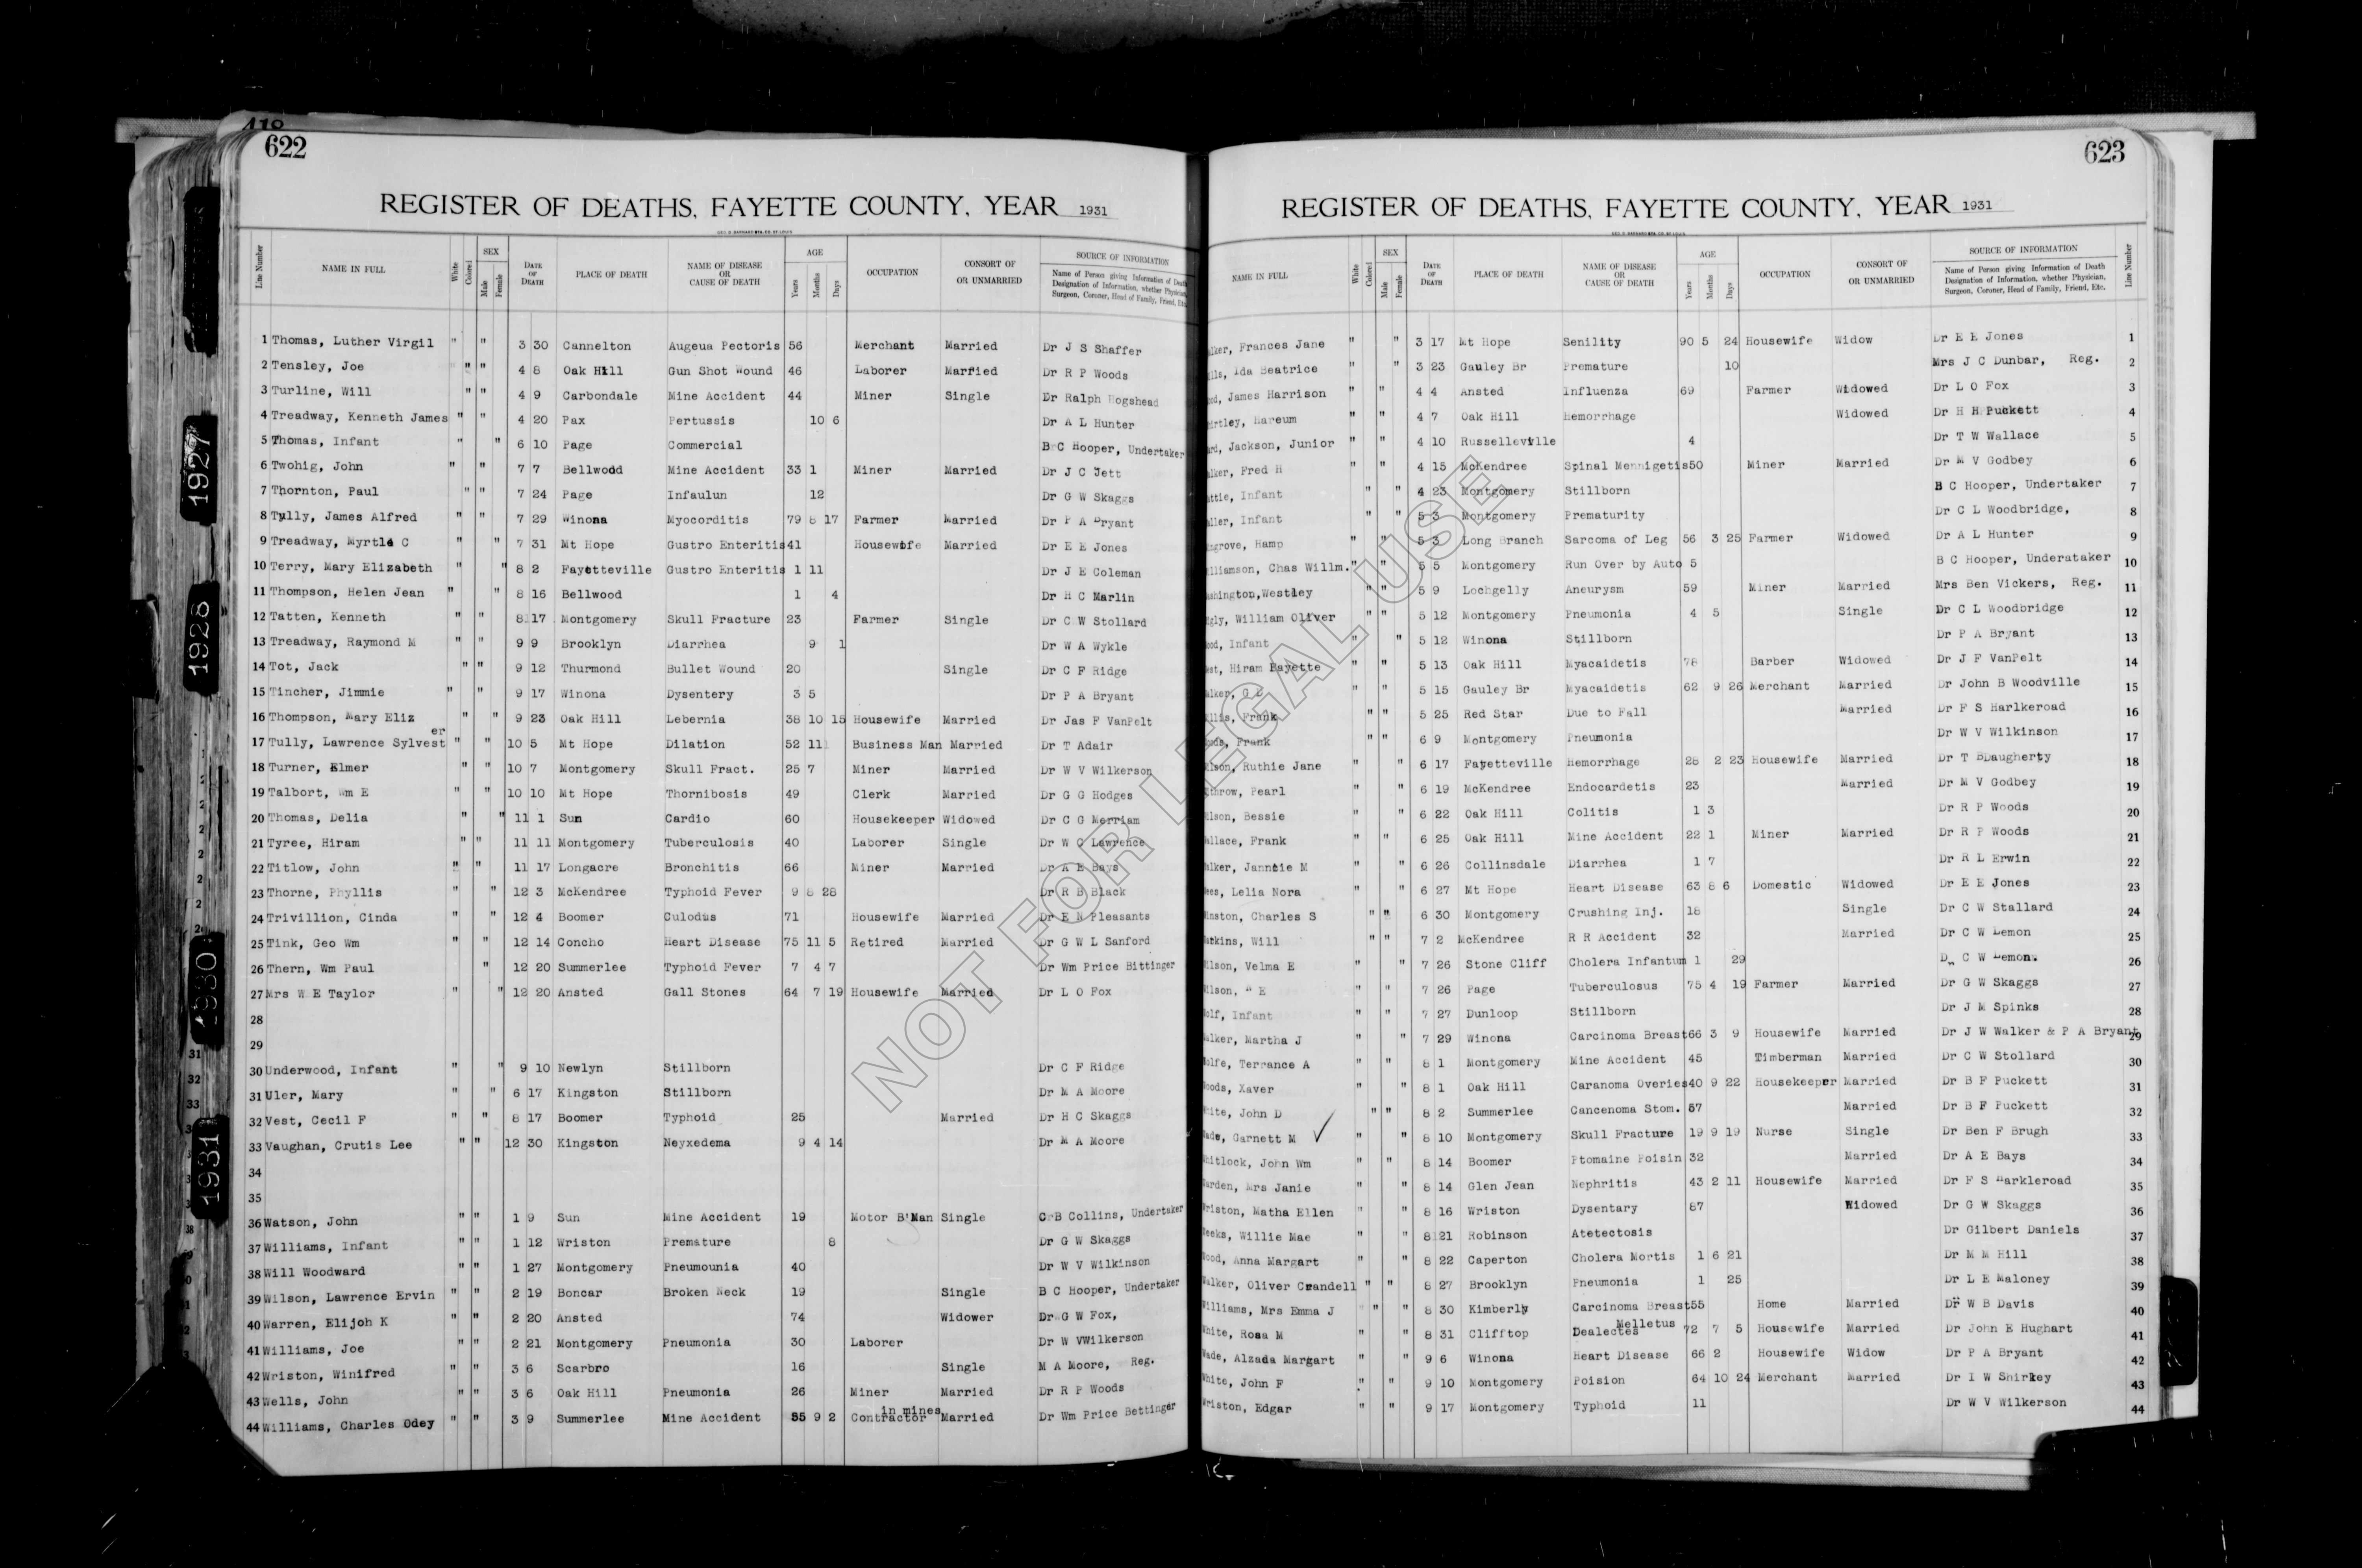 418
622
REGISTER OF DEATHS, FAYETTE COUNTY, YEAR 1931
GEO. D. BARNARD STA. CO. ST. LOUIS
Line Number NAME IN FULL White Colored SEX Male Female DATE OF DEATH PLACE OF DEATH NAME OF DISEASE OR CAUSE OF DEATH AGE Years Months Days OCCUPATION CONSORT OF OR UNMARRIED SOURCE OF INFORMATION
Name of Person giving Information of Death
Designation of Information, whether Physician,
Surgeon, Coroner, Head of Family, Friend, Etc.
1 Thomas, Luther Virgil " " 3 30 Cannelton Augeua Pectoris 56 Merchant Married Dr J S Shaffer
2 Tensley, Joe " " 4 8 Oak Hill Gun Shot Wound 46 Laborer Married Dr R P Woods
3 Turline, Will " " 4 9 Carbondale Mine Accident 44 Miner Single Dr Ralph Hogshead
4 Treadway, Kenneth James " " 4 20 Pax Pertussis 10 6 Dr A L Hunter
5 Thomas, Infant " " 6 10 Page Commercial B C Hooper, Undertaker
6 Twohig, John " " 7 7 Bellwood Mine Accident 33 1 Miner Married Dr J C Jett
7 Thornton, Paul " " 7 24 Page Infaulun 12 Dr G W Skaggs
8 Tully, James Alfred " " 7 29 Winona Myocorditis 79 8 17 Farmer Married Dr P A Bryant
9 Treadway, Myrtle C " " 7 31 Mt Hope Gustro Enteritis 41 Housewife Married Dr E E Jones
10 Terry, Mary Elizabeth " " 8 2 Fayetteville Gustro Enteritis 1 11 Dr J E Coleman
11 Thompson, Helen Jean " " 8 16 Bellwood 1 4 Dr H C Marlin
12 Tatten, Kenneth " " 8 17 Montgomery Skull Fracture 23 Farmer Single Dr C W Stollard
13 Treadway, Raymond M " " 9 9 Brooklyn Diarrhea 9 1 Dr W A Wykle
14 Tot, Jack " " 9 12 Thurmond Bullet Wound 20 Single Dr C F Ridge
15 Tincher, Jimmie " " 9 17 Winona Dysentery 3 5 Dr P A Bryant
16 Thompson, Mary Eliz " " 9 23 Oak Hill Lebernia 38 10 15 Housewife Married Dr Jas F VanPelt
er
17 Tully, Lawrence Sylvest " " 10 5 Mt Hope Dilation 52 11 Business Man Married Dr T Adair
18 Turner, Elmer " " 10 7 Montgomery Skull Fract. 25 7 Miner Married Dr W V Wilkerson
19 Talbort, Wm E " " 10 10 Mt Hope Thornibosis 49 Clerk Married Dr G G Hodges
20 Thomas, Delia " " 11 1 Sun Cardio 60 Housekeeper Widowed Dr C G Merriam
21 Tyree, Hiram " " 11 11 Montgomery Tuberculosis 40 Laborer Single Dr W C Lawrence
22 Titlow, John " " 11 17 Longacre Bronchitis 66 Miner Married Dr A E Bays
23 Thorne, Phyllis " " 12 3 McKendree Typhoid Fever 9 8 28 Dr R B Black
24 Trivillion, Cinda " " 12 4 Boomer Culodus 71 Housewife Married Dr E N Pleasants
25 Tink, Geo Wm " " 12 14 Concho Heart Disease 75 11 5 Retired Married Dr G W L Sanford
26 Thern, Wm Paul " 12 20 Summerlee Typhoid Fever 7 4 7 Dr Wm Price Bittinger
27 Mrs W E Taylor " " 12 20 Ansted Gall Stones 64 7 19 Housewife Married Dr L O Fox
28
29
30 Underwood, Infant " " 9 10 Newlyn Stillborn Dr C F Ridge
31 Uler, Mary " " 6 17 Kingston Stillborn Dr M A Moore
32 Vest, Cecil F " " 8 17 Boomer Typhoid 25 Married Dr H C Skaggs
33 Vaughan, Crutis Lee " " 12 30 Kingston Neyxedema 9 4 14 Dr M A Moore
34
35
36 Watson, John " " 1 9 Sun Mine Accident 19 Motor B'Man Single C B Collins, Undertaker
37 Williams, Infant " " 1 12 Wriston Premature 8 Dr G W Skaggs
38 Will Woodward " " 1 27 Montgomery Pneumounia 40 Dr W V Wilkinson
39 Wilson, Lawrence Ervin " " 2 19 Boncar Broken Neck 19 Single B C Hooper, Undertaker
40 Warren, Elijoh K " " 2 20 Ansted 74 Widower Dr G W Fox,
41 Williams, Joe " " 2 21 Montgomery Pneumonia 30 Laborer Dr W VWilkerson
42 Wriston, Winifred " " 3 6 Scarbro 16 Single M A Moore, Reg.
43 Wells, John " " 3 6 Oak Hill Pneumonia 26 Miner Married Dr R P Woods
in mines
44 Williams, Charles Odey " " 3 9 Summerlee Mine Accident 35 9 2 Contractor Married Dr Wm Price Bettinger
623
REGISTER OF DEATHS, FAYETTE COUNTY, YEAR 1931
GEO. D. BARNARD STA. CO. ST. LOUIS
NAME IN FULL White Colored SEX Male Female DATE OF DEATH PLACE OF DEATH NAME OF DISEASE OR CAUSE OF DEATH AGE Years Months Days OCCUPATION CONSORT OF OR UNMARRIED SOURCE OF INFORMATION Line Number
Name of Person giving Information of Death
Designation of Information, whether Physician,
Surgeon, Coroner, Head of Family, Friend, Etc.
alker, Frances Jane " " 3 17 Mt Hope Senility 90 5 24 Housewife Widow Dr E E Jones 1
lls, Ida Beatrice " " 3 23 Gauley Br Premature 10 Mrs J C Dunbar, Reg. 2
ood, James Harrison " " 4 4 Ansted Influenza 69 Farmer Widowed Dr L O Fox 3
irtley, Hareum " " 4 7 Oak Hill Hemorrhage Widowed Dr H H Puckett 4
ard, Jackson, Junior " " 4 10 Russelleville 4 Dr T W Wallace 5
alker, Fred H " " 4 15 McKendree Spinal Mennigetis 50 Miner Married Dr M V Godbey 6
attie, Infant " " 4 23 Montgomery Stillborn B C Hooper, Undertaker 7
aller, Infant " " 5 3 Montgomery Prematurity Dr C L Woodbridge, 8
ngrove, Hamp " " 5 3 Long Branch Sarcoma of Leg 56 3 25 Farmer Widowed Dr A L Hunter 9
illiamson, Chas Willm. " " 5 5 Montgomery Run Over by Auto 5 B C Hooper, Underataker 10
ashington, Westley " " 5 9 Lochgelly Aneurysm 59 Miner Married Mrs Ben Vickers, Reg. 11
igly, William Oliver " " 5 12 Montgomery Pneumonia 4 5 Single Dr C L Woodbridge 12
ood, Infant " " 5 12 Winona Stillborn Dr P A Bryant 13
est, Hiram Fayette " " 5 13 Oak Hill Myacaidetis 78 Barber Widowed Dr J F VanPelt 14
alker, G D " " 5 15 Gauley Br Myacaidetis 62 9 26 Merchant Married Dr John B Woodville 15
illis, Frank " " 5 25 Red Star Due to Fall Married Dr F S Harlkeroad 16
oods, Frank " " 6 9 Montgomery Pneumonia Dr W V Wilkinson 17
ilson, Ruthie Jane " " 6 17 Fayetteville Hemorrhage 28 2 23 Housewife Married Dr T BDaugherty 18
throw, Pearl " " 6 19 McKendree Endocardetis 23 Married Dr M V Godbey 19
ilson, Bessie " " 6 22 Oak Hill Colitis 1 3 Dr R P Woods 20
allace, Frank " " 6 25 Oak Hill Mine Accident 22 1 Miner Married Dr R P Woods 21
alker, Janntie M " " 6 26 Collinsdale Diarrhea 1 7 Dr R L Erwin 22
ees, Lelia Nora " " 6 27 Mt Hope Heart Disease 63 8 6 Domestic Widowed Dr E E Jones 23
Winston, Charles S " " 6 30 Montgomery Crushing Inj. 18 Single Dr C W Stallard 24
Watkins, Will " " 7 2 McKendree R R Accident 32 Married Dr C W Lemon 25
Wilson, Velma E " " 7 26 Stone Cliff Cholera Infantum 1 29 Dr C W Lemon 26
Wilson, " E " " 7 26 Page Tuberculosus 75 4 19 Farmer Married Dr G W Skaggs 27
Wolf, Infant " " 7 27 Dunloop Stillborn Dr J M Spinks 28
Walker, Martha J " " 7 29 Winona Carcinoma Breast 66 3 9 Housewife Married Dr J W Walker & P A Bryant 29
Wolfe, Terrance A " " 8 1 Montgomery Mine Accident 45 Timberman Married Dr C W Stollard 30
Woods, Xaver " " 8 1 Oak Hill Caranoma Overies 40 9 22 Housekeeper Married Dr B F Puckett 31
White, John D " " 8 2 Summerlee Cancenoma Stom. 57 Married Dr B F Puckett 32
Wade, Garnett M ✓ " " 8 10 Montgomery Skull Fracture 19 9 19 Nurse Single Dr Ben F Brugh 33
Whitlock, John Wm " " 8 14 Boomer Ptomaine Poisin 32 Married Dr A E Bays 34
Warden, Mrs Janie " " 8 14 Glen Jean Nephritis 43 2 11 Housewife Married Dr F S Harkleroad 35
Wriston, Matha Ellen " " 8 16 Wriston Dysentary 87 Widowed Dr G W Skaggs 36
Weeks, Willie Mae " " 8 21 Robinson Atetectosis Dr Gilbert Daniels 37
Wood, Anna Margart " " 8 22 Caperton Cholera Mortis 1 6 21 Dr M M Hill 38
Walker, Oliver Crandell " " 8 27 Brooklyn Pneumonia 1 25 Dr L E Maloney 39
Williams, Mrs Emma J " " 8 30 Kimberly Carcinoma Breast 55 Home Married Dr W B Davis 40
Melletus
White, Rosa M " " 8 31 Clifftop Dealectes 72 7 5 Housewife Married Dr John E Hughart 41
Wade, Alzada Margart " " 9 6 Winona Heart Disease 66 2 Housewife Widow Dr P A Bryant 42
White, John F " " 9 10 Montgomery Poision 64 10 24 Merchant Married Dr I W Shirley 43
Wriston, Edgar " " 9 17 Montgomery Typhoid 11 Dr W V Wilkerson 44
1927
1928
1930
1931
NOT FOR LEGAL USE